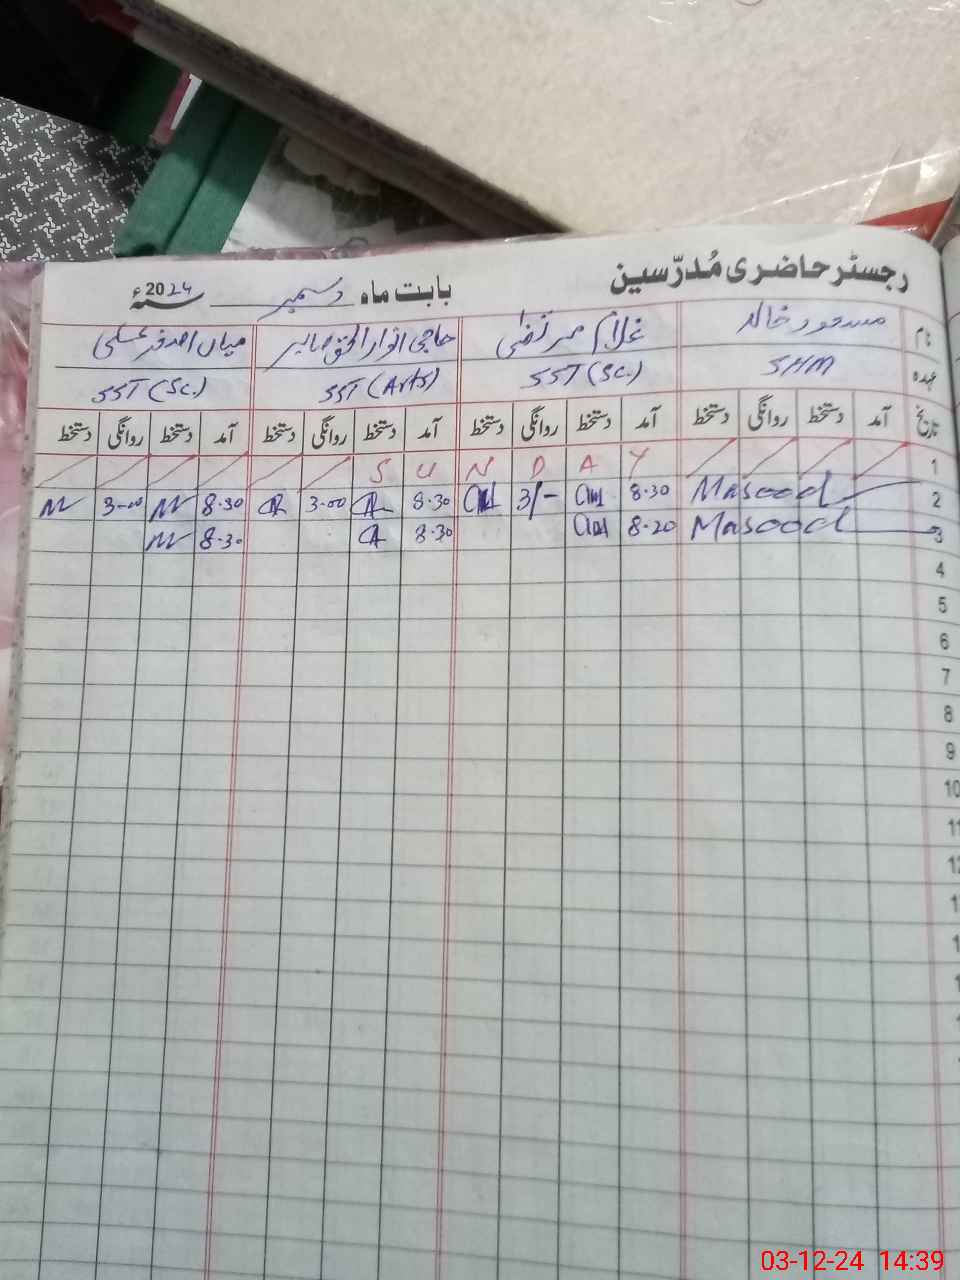 رجسٹر حاضری مُدرّسین بابت ماہ دسمبر سنہ 2024ء
نام مسعود خالد غلام مرتضیٰ حاجی انوار الحق صابر میاں اصغر علی
عہدہ SHM SST (Sc.) SST (Arts) SST (Sc.)
تاریخ آمد دستخط روانگی دستخط آمد دستخط روانگی دستخط آمد دستخط روانگی دستخط آمد دستخط روانگی دستخط
1 S U N D A Y
2 Masood 8.30 3/- 8.30 3-00 8.30 3-00
3 Masood 8.20 8.30 8.30
4
5
6
7
8
9
10
11
03-12-24 14:39